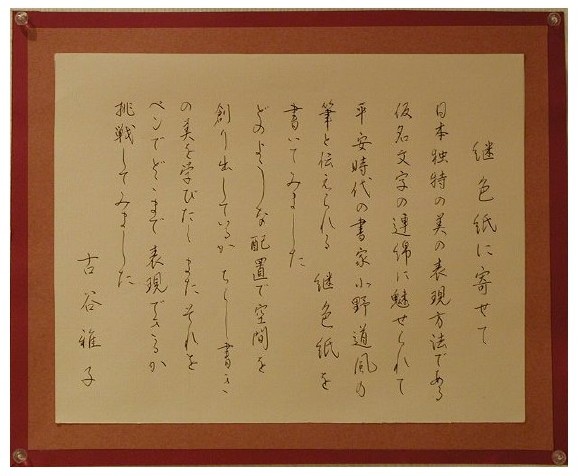 継色紙に寄せて
日本独特の美の表現方法である
仮名文字の連綿に魅せられて
平安時代の書家小野道風の
筆と伝えられる 継色紙を
書いてみました
どのような配置で空間を
創り出しているか ちらし書き
の美を学びたく またそれを
ペンでどこまで表現できるか
挑戦してみました
古谷雅子